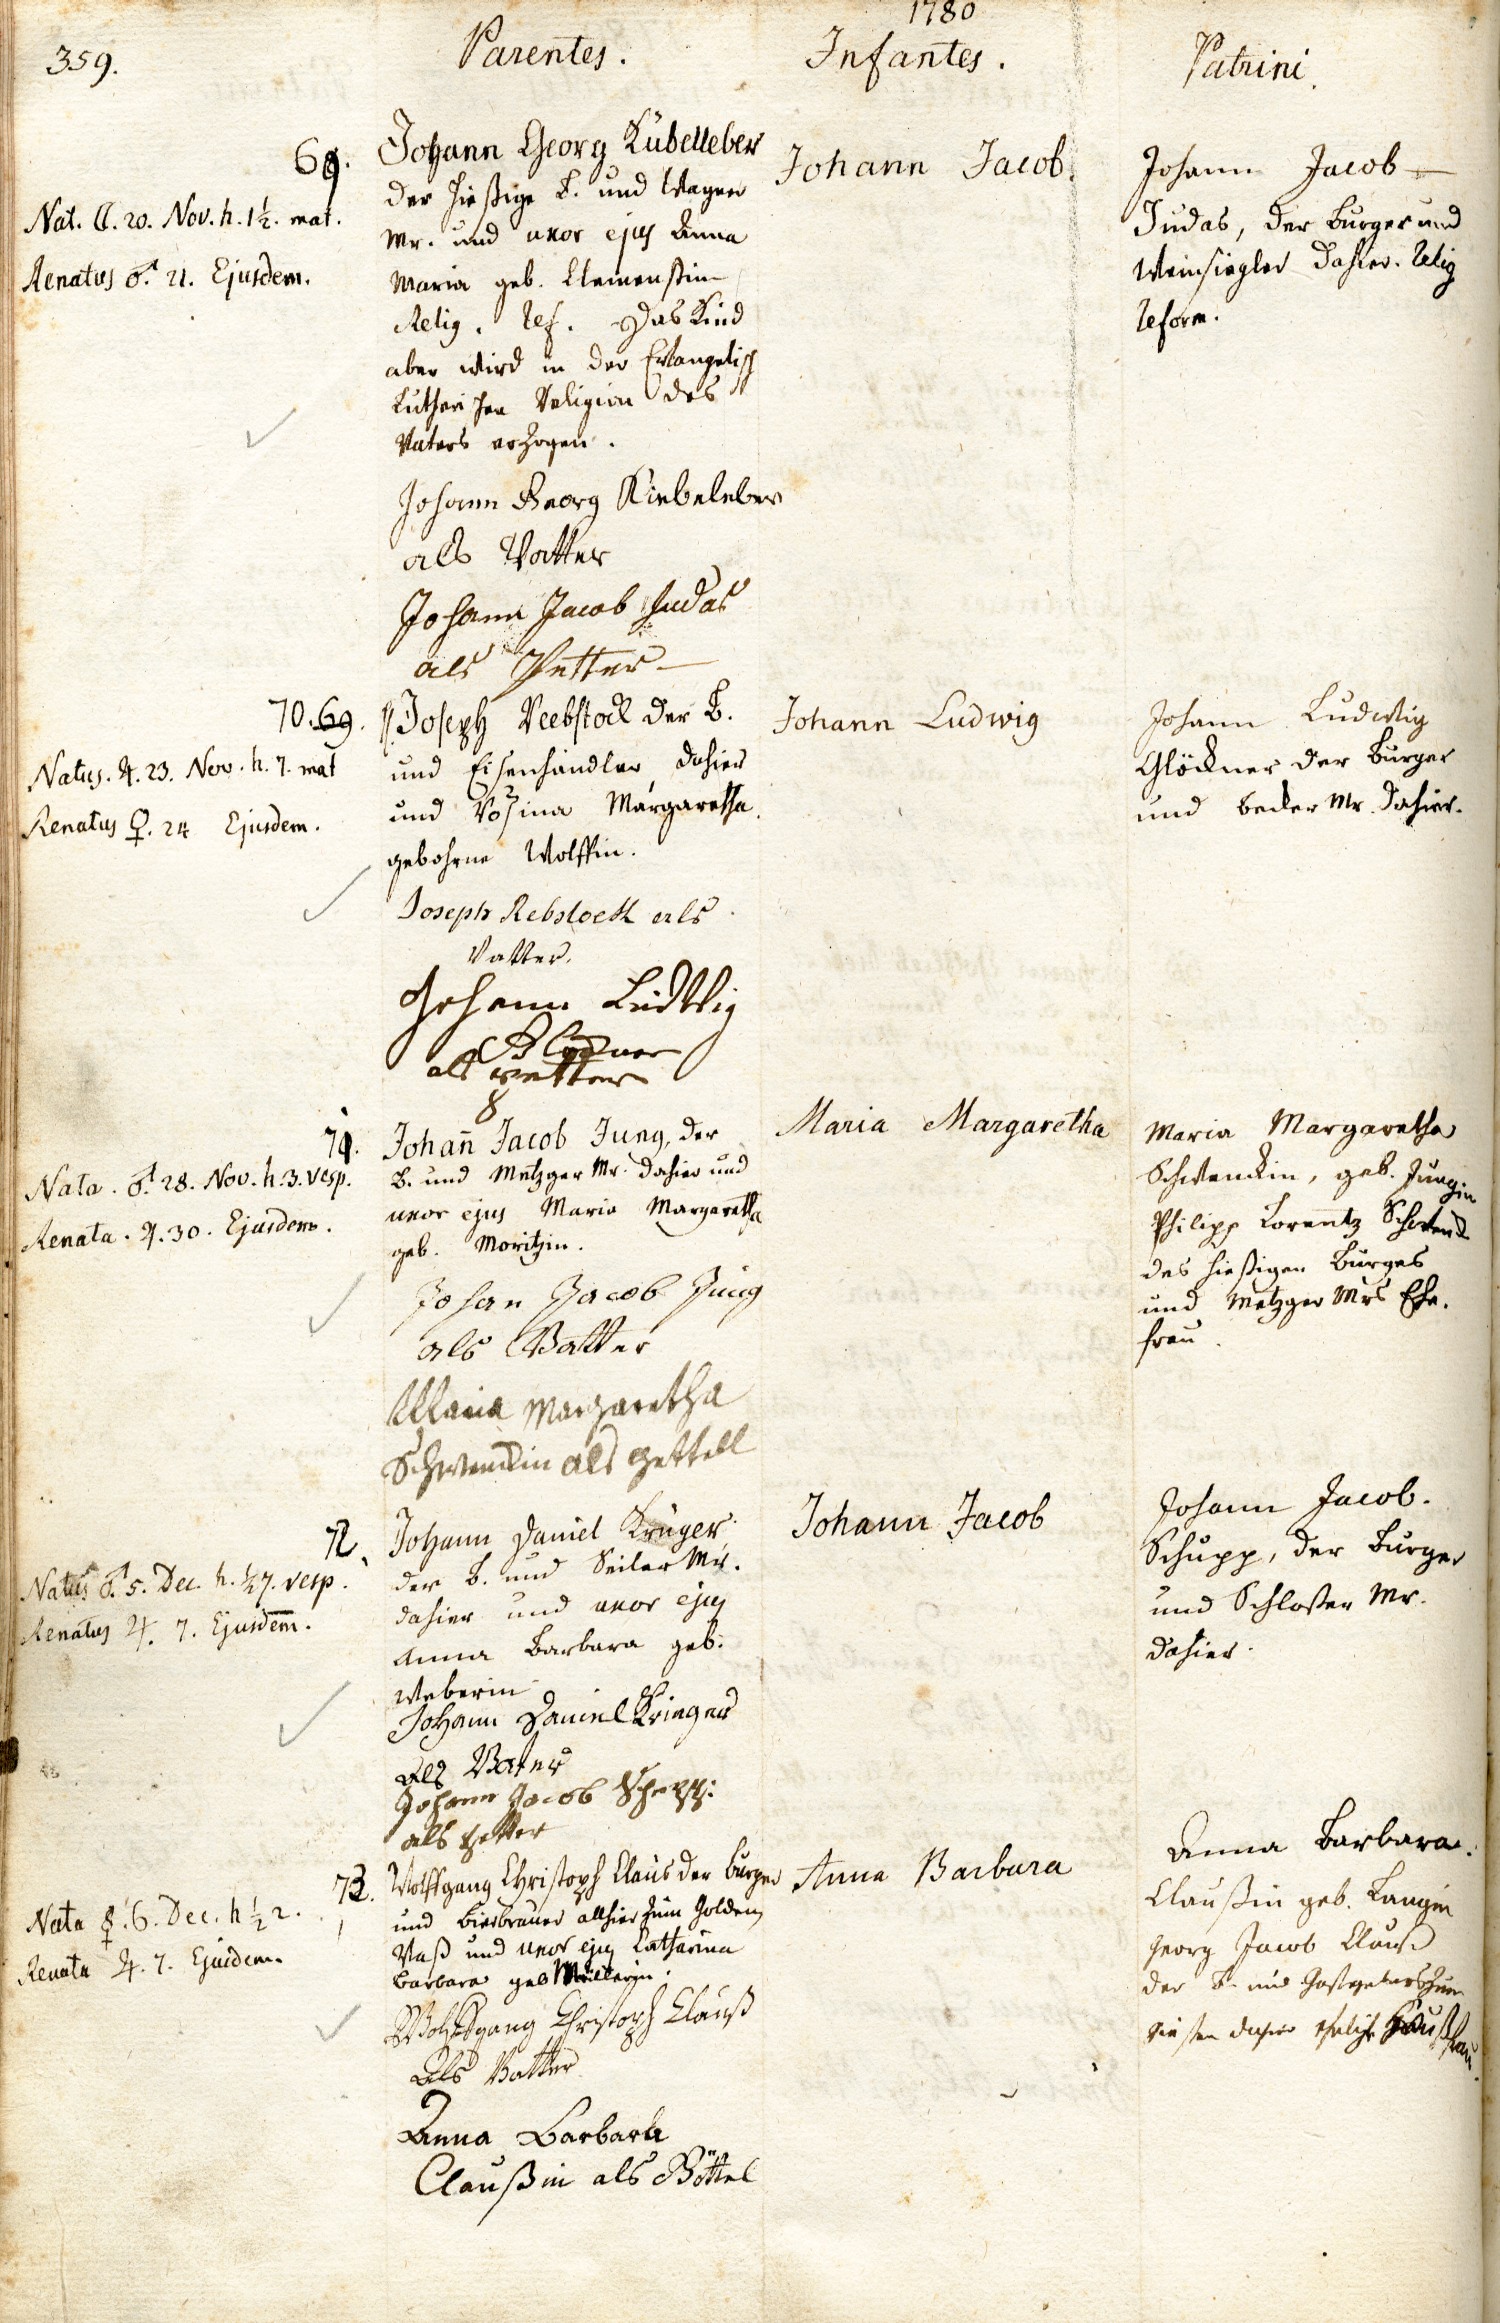 1780
359.
Parentes.
Infantes.
Patrini.
69.
Nat. ☾. 20. Nov. h. 1½. mat.
Renatus ♂. 21. Ejusdem.
Johann Georg Kübelleber
der hießige B. und Wagner
Mr. und uxor ejus Anna
Maria geb. Clemenßin
Relig. Ref. Das Kind
aber wird in der Evangelisch
Lutherischen Religion des
Vaters erzogen.
Johann Georg Kiebeleber
als Vatter
Johann Jacob Judas
als Petter
Johann Jacob.
Johann Jacob
Judas, der Burger und
Weinsiegler dahier. Relig
Reform.
70. 69.
Natus. ♃. 23. Nov. h. 7. mat
Renatus ♀. 24 Ejusdem.
Joseph Reebstock der B.
und Eisenhändler dahier
und Rosina Margaretha
gebohrne Wolffin.
Joseph Rebstock als
Vatter.
Johann Ludwig
Glockner
als Petter
Johann Ludwig
Johann Ludwig
Glöckner der Burger
und Becker Mr. dahier.
71.
Nata. ♂. 28. Nov. h. 3. vesp.
Renata. ♃. 30. Ejusdem.
Johan̄ Jacob Jung, der
B. und Metzger Mr. dahier und
uxor ejus Maria Margaretha
geb. Moritzin.
Johan Jacob Jung
als Vatter
Maria Margaretha
Schwenckin als Gettell
Maria Margaretha
Maria Margaretha
Schwenckin, geb. Jungin
Philipp Lorentz Schwenck
des hießigen Burgers
und Metzger Mrs Ehe-
frau.
72.
Natus ♂. 5. Dec. h. ½7. vesp.
Renatus ♃. 7. Ejusdem.
Johann Daniel Krüger
der B. und Seiler Mr.
dahier und uxor ejus
Anna Barbara geb.
Weberin
Johann Daniel Krieger
als Vater
Johann Jacob Schupp:
als Petter
Johann Jacob
Johann Jacob.
Schupp, der Burger
und Schloßer Mr.
dahier.
73.
Nata ☿. 6. Dec. h ½ 2.
Renata ♃. 7. Ejusdem.
Wolffgang Christoph Claus der Burger
und Bierbrauer allhier zum Golden
Vaß und uxor ejus Catharina
Barbara geb Müllerin.
Wolffgang Christoph Clauß
Als Vatter
Anna Barbara
Claußin als Göttel
Anna Barbara
Anna Barbara.
Claußin geb. Langin
Georg Jacob Clauß
der B. und Gastgebers zum
Rießen dahier ehelige Haußfrau.